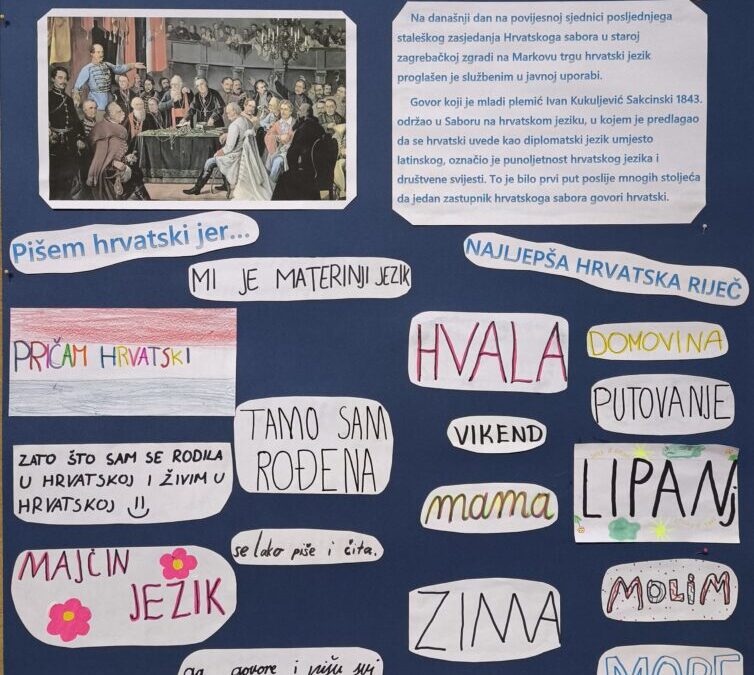 Na današnji dan na povijesnoj sjednici posljednjega
staleškog zasjedanja Hrvatskoga sabora u staroj
zagrebačkoj zgradi na Markovu trgu hrvatski jezik
proglašen je službenim u javnoj uporabi.
Govor koji je mladi plemić Ivan Kukuljević Sakcinski 1843.
održao u Saboru na hrvatskom jeziku, u kojem je predlagao
da se hrvatski uvede kao diplomatski jezik umjesto
latinskog, označio je punoljetnost hrvatskog jezika i
društvene svijesti. To je bilo prvi put poslije mnogih stoljeća
da jedan zastupnik hrvatskoga sabora govori hrvatski.
Pišem hrvatski jer...
MI JE MATERINJI JEZIK
PRIČAM HRVATSKI
TAMO SAM
ROĐENA
ZATO ŠTO SAM SE RODILA
U HRVATSKOJ I ŽIVIM U
HRVATSKOJ
se lako piše i čita.
MAJČIN
JEZIK
ga govore i pišu svi
NAJLJEPŠA HRVATSKA RIJEČ
HVALA
DOMOVINA
PUTOVANJE
VIKEND
LIPANj
mama
MOLIM
ZIMA
MORE